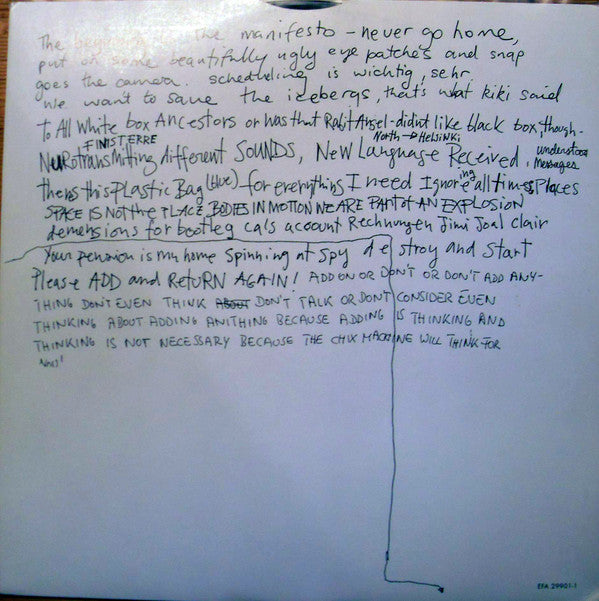 The beginning is the manifesto – never go home,
put on some beautifully ugly eye patches and snap
goes the camera. scheduling is wichtig, sehr.
we want to save the icebergs, that's what kiki said
to All White box Ancestors or was that Ralf Ansel-didn't like black box, though-
FINISTERRE North → Helsinki understood
Neurotransmitting different SOUNDS, New Language Received, Messages
theres this Plastic Bag (blue) for everything I need Ignoreing all times Places
SPACE IS NOT the PLACE BODIES IN MOTION WE ARE PART of AN EXPLOSION
demensions for bootleg cals account Rechnungen Jimi Joal clair
Your pension is my home Spinning at Spy destroy and Start
Please ADD and RetuRN AGAIN! ADD ON OR DON'T OR DON'T ADD ANY-
THING DON'T EVEN THINK ABOUT DON'T TALK OR DONT CONSIDER EVEN
THINKING ABOUT ADDING ANITHING BECAUSE ADDING IS THINKING AND
THINKING IS NOT NECESSARY BECAUSE THE CHIX MACHINE WILL THINK FOR
EFA 29901-1